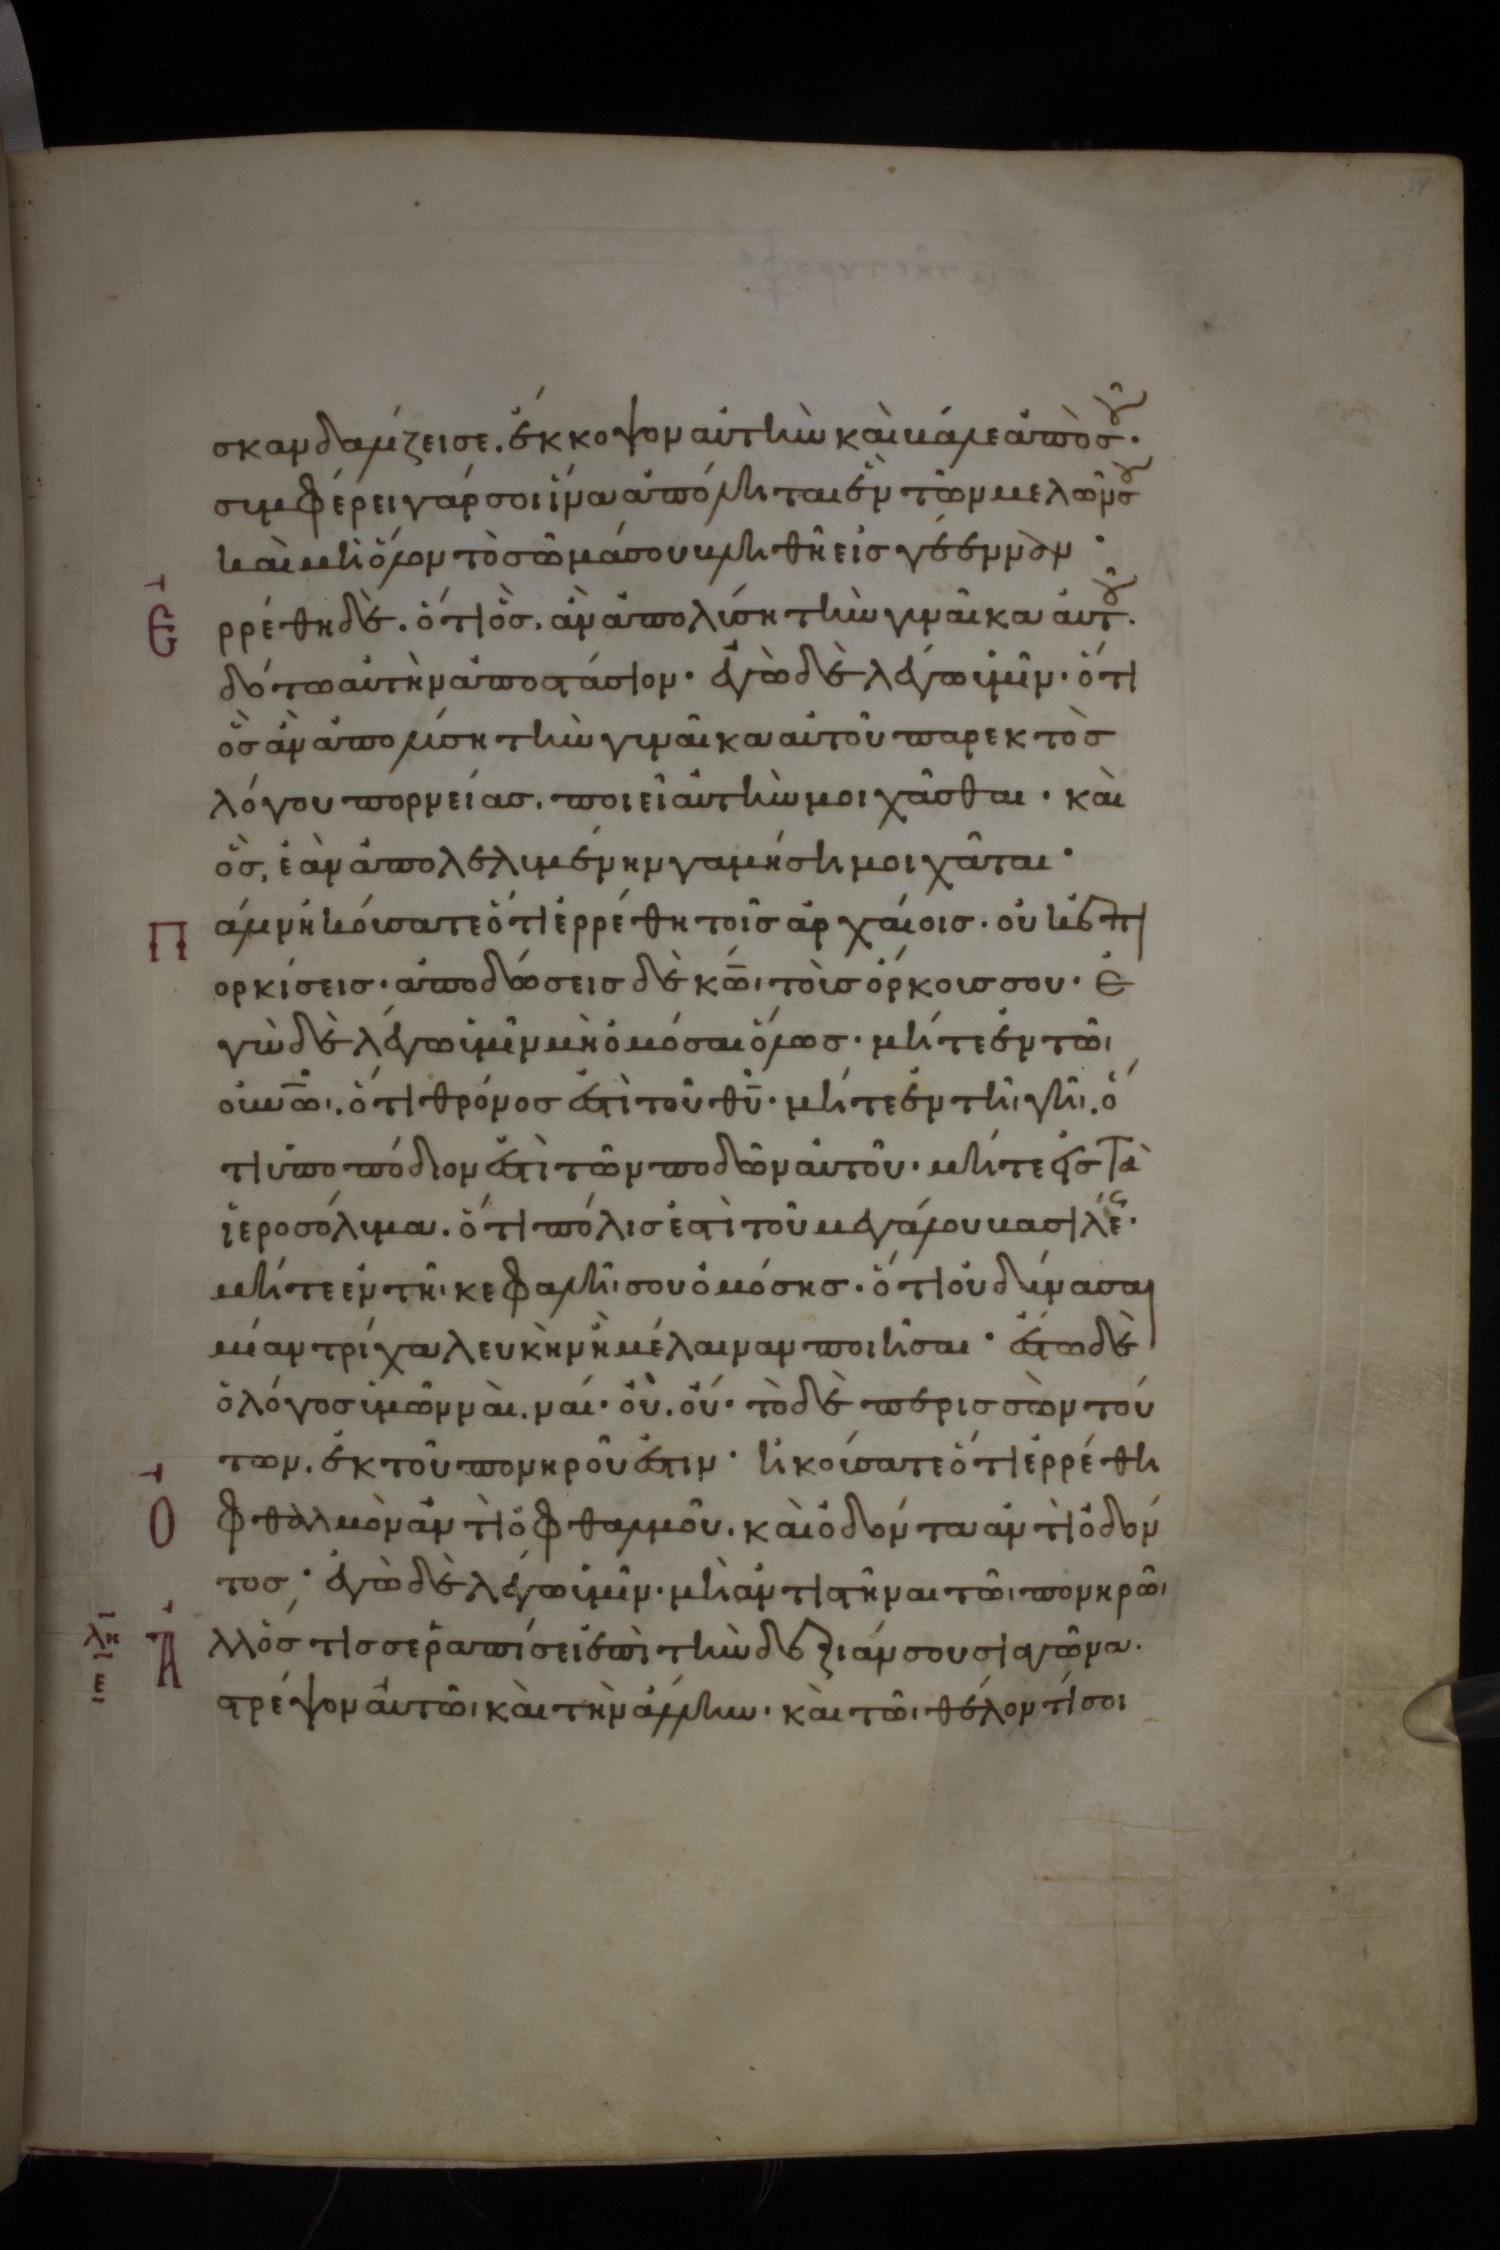 σκανδαλίζει σε. ἔκκοψον αὐτὴν καὶ βάλε ἀπὸ σοῦ.
συμφέρει γάρ σοι ἵνα ἀπόληται ἓν τῶν μελῶν σου
καὶ μὴ ὅλον τὸ σῶμά σου βληθῆ εἰς γέενναν·
Ε ρρέθη δὲ. ὅτι ὃς. ἂν ἀπολύση τὴν γυναῖκα αὐτοῦ.
δότω αὐτῆ ἀποστάσιον· ἐγὼ δὲ λέγω ὑμῖν· ὅτι
ὃς ἂν ἀπολύση τὴν γυναῖκα αὐτοῦ παρεκτὸς
λόγου πορνείας. ποιεῖ αὐτὴν μοιχᾶσθαι· καὶ
ὃς, ἐὰν ἀπολελυμένην γαμήση μοιχᾶται·
Π άλιν ἠκούσατε ὅτι ἐρρέθη τοῖς ἀρχαίοις· οὐκ ἐπι
ορκίσεις· ἀποδώσεις δὲ κω̅ι τοὺς ὅρκους σου· ἐ
γὼ δὲ λέγω ὑμῖν μὴ ὀμόσαι ὅλως· μήτε ἐν τῶι
οὐνω̅ι. ὅτι θρόνος ἐστὶ τοῦ θυ̅· μήτε ἐν τῆι γῆι. ὅ
τι ὑποπόδιον ἐστὶ τῶν ποδῶν αὐτοῦ· μήτε εἰς τὰ
ἱεροσόλυμα. ὅτι πόλις ἐστὶ τοῦ μεγάλου βασιλέως·
μήτε ἐν τῆι κεφαλῆι σου ὀμόσης· ὅτι οὐ δύνασαι
μίαν τρίχα λευκὴν ἢ μέλαιναν ποιῆσαι· ἔστω δὲ
ὁ λόγος ὑμῶν ναὶ. ναί· οὒ. οὔ· τὸ δὲ πέρισσὸν τού
των. ἐκ τοῦ πονηροῦ ἐστιν· ἠκούσατε ὅτι ἐρρέθη
Ο φθαλμὸν ἀντὶ ὀφθαλμοῦ. καὶ ὀδόντα ἀντὶ ὀδόν
τος· ἐγὼ δὲ λέγω ὑμῖν· μὴ ἀντιστῆναι τῶι πονηρῶι
λη ε Ἀ λλ' ὅστις σε ῥαπίσει ἐπὶ τὴν δεξιάν σου σιαγῶνα.
στρέψον αὐτῶι καὶ τὴν ἄλλην· καὶ τῶι θέλοντί σοι